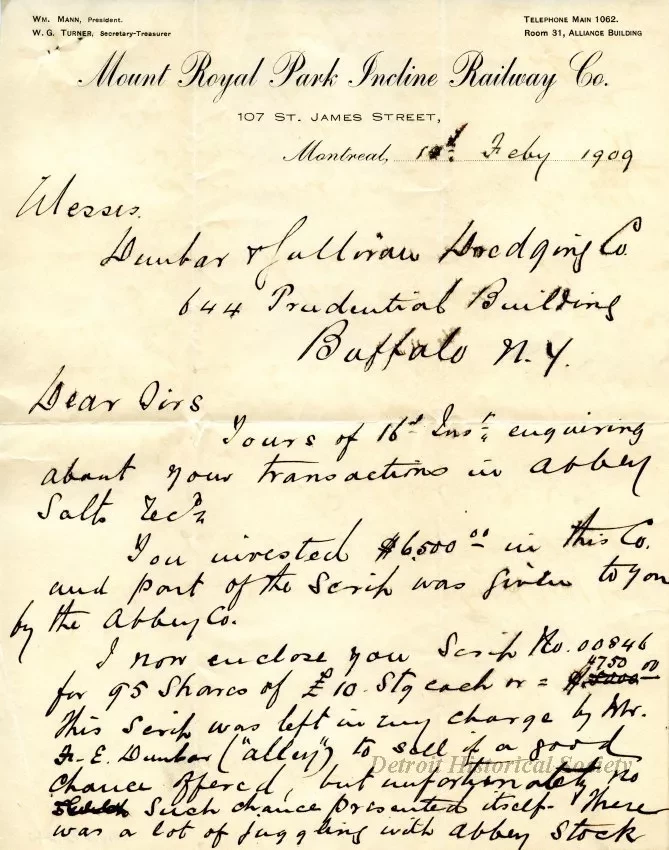 Wm. Mann, President.
W. G. Turner, Secretary-Treasurer
Telephone Main 1062.
Room 31, Alliance Building
Mount Royal Park Incline Railway Co.
107 St. James Street,
Montreal, Feby 1909
Messrs.
Dunbar & Sullivan Dredging Co
644 Prudential Building
Buffalo N.Y.
Dear Sirs
Yours of 16th Inst. enquiring
about your transactions in Abbey
Salts Recd.
You invested $6500 00 in this Co.
and part of the Scrip was given to you
by the Abbey Co.
I now enclose you Scrip No. 00846
for 95 Shares of £10. Stg each or = $4750 00
This Scrip was left in my charge by Mr.
F. E. Dunbar ("alley") to sell if a good
chance offered, but unfortunately no
such chance presented itself. There
was a lot of juggling with Abbey Stock
Detroit Historical Society